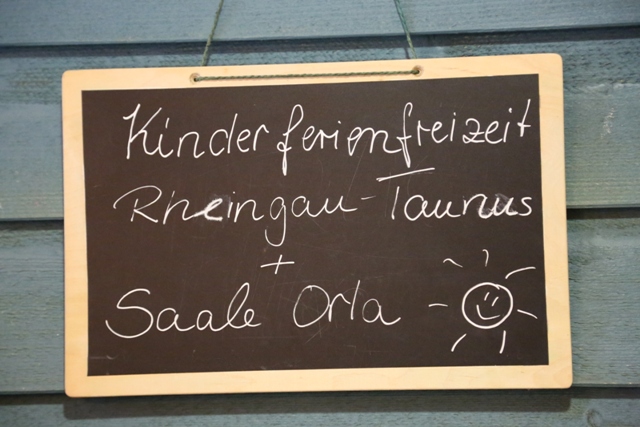 Kinderferienfreizeit
Rheingau-Taunus
+
Saale Orla